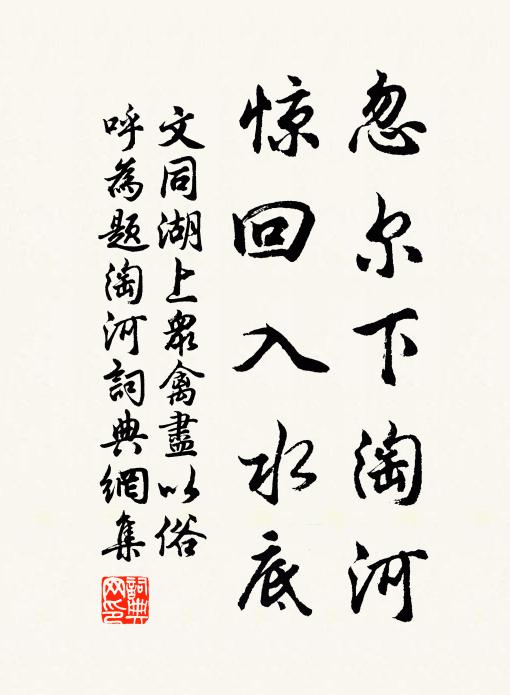 忽尔下淘河
惊回入水底
文同湖上眾禽盡以俗
呼為題淘河詞典網集
詞典网印